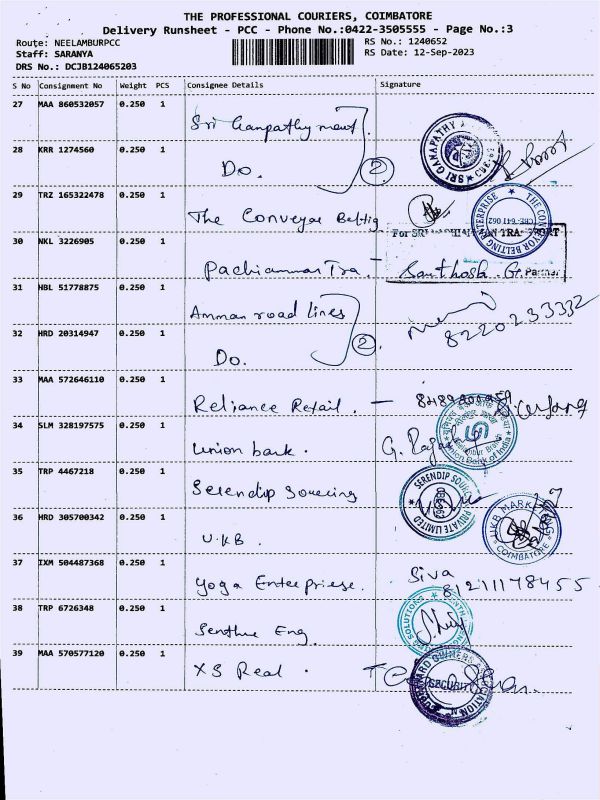 THE PROFESSIONAL COURIERS, COIMBATORE
Delivery Runsheet - PCC - Phone No.:0422-3505555 - Page No.:3
Route: NEELAMBURPCC
RS No.: 1240652
Staff: SARANYA
RS Date: 12-Sep-2023
DRS No.: DCJB124065203
S No Consignment No Weight PCS Consignee Details Signature
27 MAA 860532057 0.250 1
Sri Ganpathy
SRI GANAPATHY
28 KRR 1274560 0.250 1
Do. 2
29 TRZ 165322478 0.250 1
The Conveyar Beltig
THE CONVEYOR BELTING ENTERPRISE
CBE-641 062
30 NKL 3226905 0.250 1
For SRI PACHIAMMAN TRANSPORT
Pachiamman Tra. - Santhosh. G. Partner
31 NBL 51778875 0.250 1
Amman road lines
8220233332
32 HRD 20314947 0.250 1
Do. 2
33 MAA 572646110 0.250 1
Reliance Retail. -
34 SLM 328197575 0.250 1
Union bank. G.
Union Bank of India
35 TRP 4467218 0.250 1
Serendip Sourcing
SERENDIP SOURCING PRIVATE LIMITED
36 HRD 305700342 0.250 1
U.K.B.
UKB MARKETING
COIMBATORE
37 IXM 504487368 0.250 1
Yoga Enterpriese. Siva
38 TRP 6726348 0.250 1
Senthil Eng.
SOLUTIONS
39 MAA 570577120 0.250 1
XS Real.
OWNERS ASSOCIATION
SECURITY